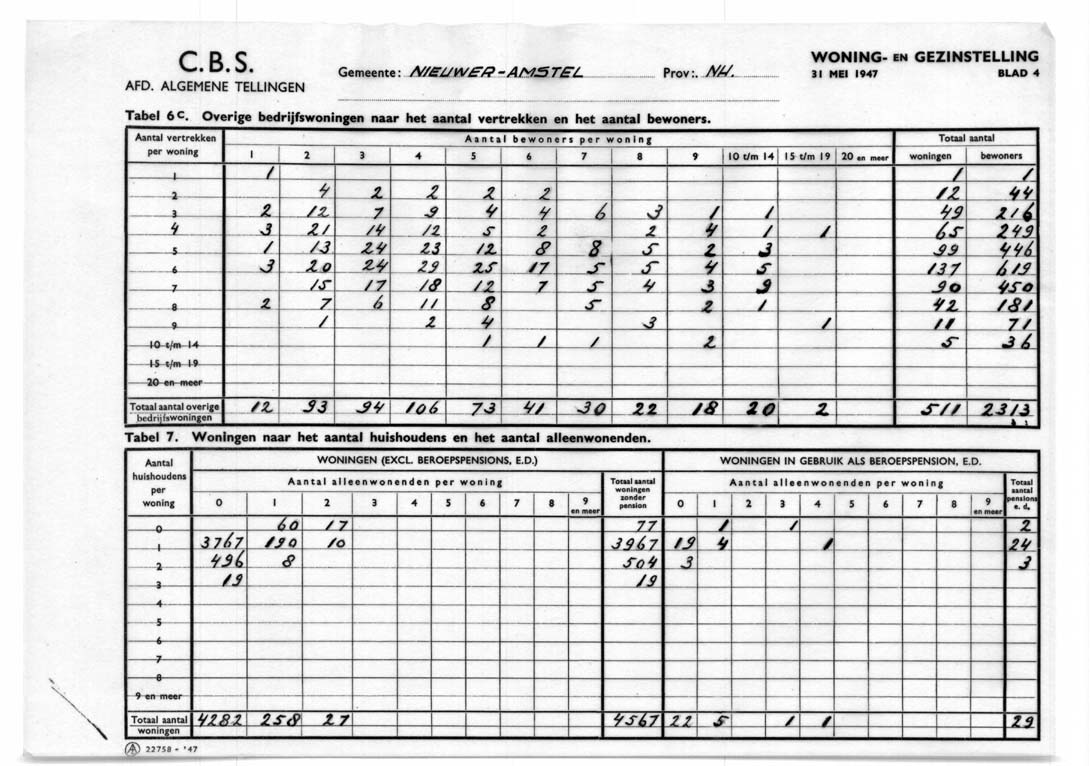 C.B.S.
AFD. ALGEMENE TELLINGEN
Gemeente: NIEUWER-AMSTEL Prov.: NH.
WONING- EN GEZINSTELLING
31 MEI 1947 BLAD 4
Tabel 6c. Overige bedrijfswoningen naar het aantal vertrekken en het aantal bewoners.
Aantal vertrekken per woning Aantal bewoners per woning Totaal aantal
1 2 3 4 5 6 7 8 9 10 t/m 14 15 t/m 19 20 en meer woningen bewoners
1 1 1 1
2 4 2 2 2 2 12 44
3 2 12 7 9 4 4 6 3 1 1 49 216
4 3 21 14 12 5 2 2 4 1 1 65 249
5 1 13 24 23 12 8 8 5 2 3 99 446
6 3 20 24 29 25 17 5 5 4 5 137 619
7 15 17 18 12 7 5 4 3 9 90 450
8 2 7 6 11 8 5 2 1 42 181
9 1 2 4 3 1 11 71
10 t/m 14 1 1 1 2 5 36
15 t/m 19
20 en meer
Totaal aantal overige bedrijfswoningen 12 93 94 106 73 41 30 22 18 20 2 511 2313
Tabel 7. Woningen naar het aantal huishoudens en het aantal alleenwonenden.
Aantal huishoudens per woning WONINGEN (EXCL. BEROEPSPENSIONS, E.D.) WONINGEN IN GEBRUIK ALS BEROEPSPENSION, E.D.
Aantal alleenwonenden per woning Totaal aantal woningen zonder pension Aantal alleenwonenden per woning Totaal aantal pensions e. d.
0 1 2 3 4 5 6 7 8 9 en meer 0 1 2 3 4 5 6 7 8 9 en meer
0 60 17 77 1 1 2
1 3767 190 10 3967 19 4 1 24
2 496 8 504 3 3
3 19 19
4
5
6
7
8
9 en meer
Totaal aantal woningen 4282 258 27 4567 22 5 1 1 29
22758 - '47